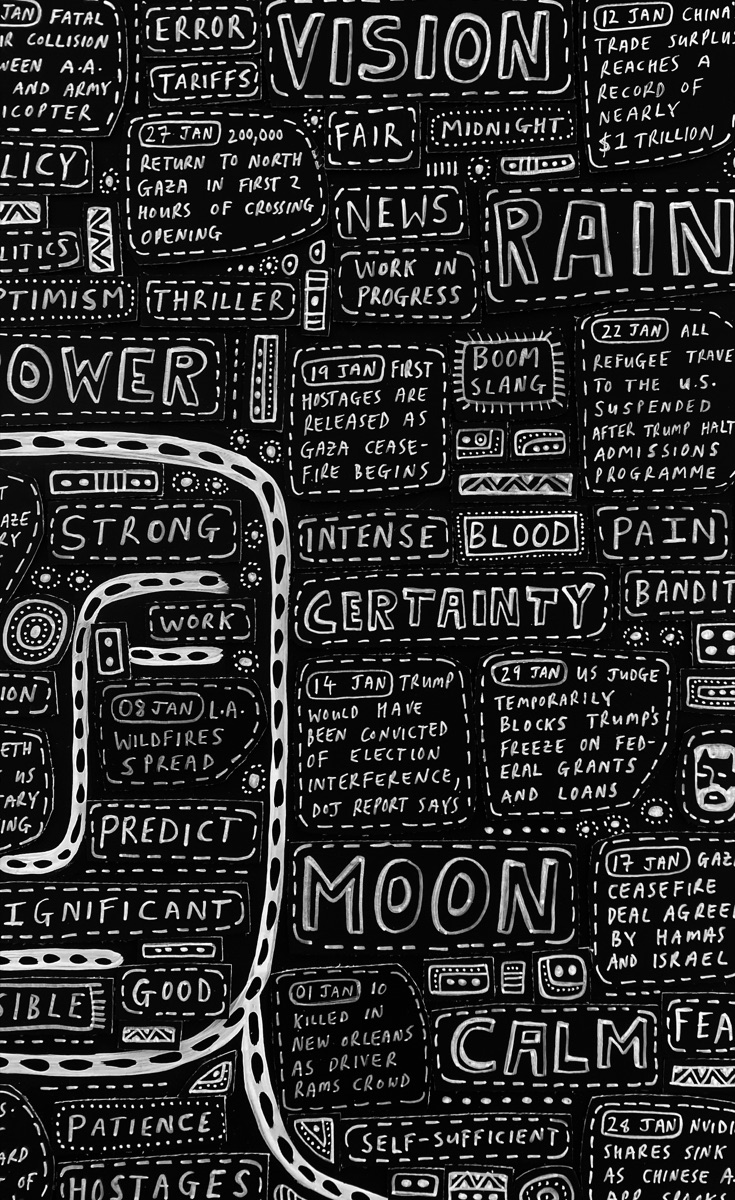 JAN FATAL
IR COLLISION
WEEN A.A.
AND ARMY
ICOPTER
ERROR
TARIFFS
VISION
12 JAN CHINA
TRADE SURPLUS
REACHES A
RECORD OF
NEARLY
$1 TRILLION
27 JAN 200,000
RETURN TO NORTH
GAZA IN FIRST 2
HOURS OF CROSSING
OPENING
FAIR
MIDNIGHT
LICY
NEWS
RAIN
LITICS
WORK IN
PROGRESS
PTIMISM
THRILLER
22 JAN ALL
REFUGEE TRAVE
TO THE U.S.
SUSPENDED
AFTER TRUMP HALT
ADMISSIONS
PROGRAMME
OWER
19 JAN FIRST
HOSTAGES ARE
RELEASED AS
GAZA CEASE-
FIRE BEGINS
BOOM
SLANG
T
AZE
RY
STRONG
INTENSE
BLOOD
PAIN
CERTAINTY
BANDIT
WORK
ION
08 JAN L.A.
WILDFIRES
SPREAD
14 JAN TRUMP
WOULD HAVE
BEEN CONVICTED
OF ELECTION
INTERFERENCE,
DOJ REPORT SAYS
29 JAN US JUDGE
TEMPORARILY
BLOCKS TRUMP'S
FREEZE ON FED-
ERAL GRANTS
AND LOANS
ETH
US
TARY
ING
PREDICT
MOON
17 JAN GAZ
CEASEFIRE
DEAL AGREE
BY HAMAS
AND ISRAEL
IGNIFICANT
SIBLE
GOOD
01 JAN 10
KILLED IN
NEW ORLEANS
AS DRIVER
RAMS CROWD
CALM
FEA
PATIENCE
SELF-SUFFICIENT
28 JAN NVIDI
SHARES SINK
AS CHINESE A
S.
ARD
OF
HOSTAGES